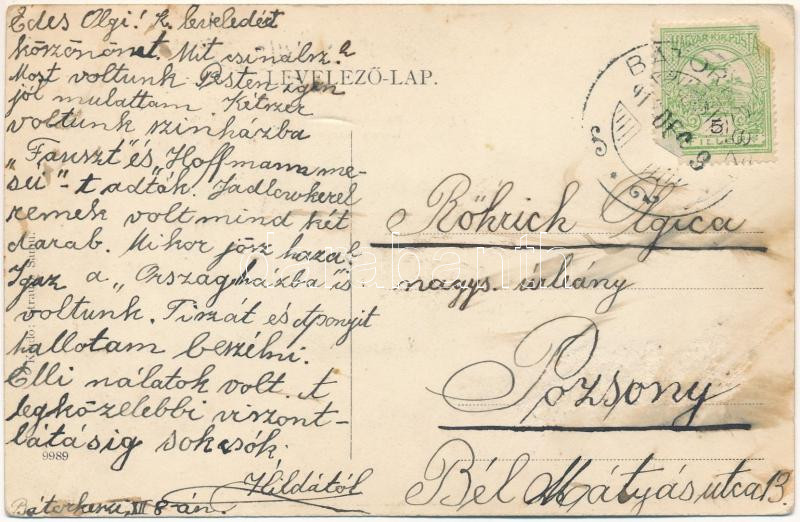 Édes Olgi! k. leveledért
köszönöm. Mit csinálsz?
Most voltunk Pesten igen
jól mulattam. Kétszer
voltunk szinházba
„Fauszt" és „Hoffmann me-
séi"-t adták. Jadlowkerel
remek volt mind két
darab. Mikor jösz haza?
Igaz a „Országházba" is
voltunk. Tiszát és Aponyit
hallottam beszélni.
Elli nálatok volt. A
legközelebbi viszont-
látásig sok csók.
Hildától
Bátorkeszi, XII 8-án.
9989
LEVELEZŐ-LAP.
MAGYAR KIR. POSTA
5
BÁTOR
DEC 9
Röhrich Olgica
nagys. úrlány
Pozsony
Bél Mátyás utca 13.
darabanth